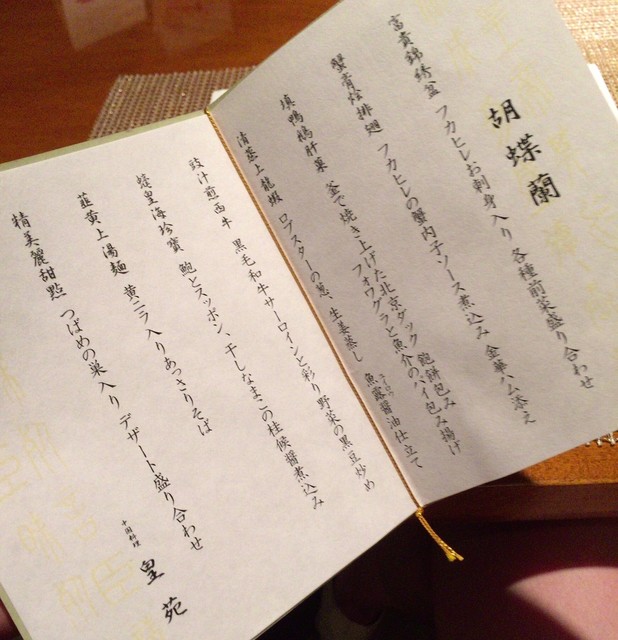 胡蝶蘭
富貴錦綉盆 フカヒレお刺身入り各種前菜盛り合わせ
蟹膏烩排翅 フカヒレの蟹内子ソース煮込み 金華ハム添え
填鴨鵝肝菓 釜で焼き上げた北京ダック 鮑餅包み
フォワグラと魚介のパイ包み揚げ
清蒸上龍蝦 ロブスターの葱、生姜蒸し 魚露醤油仕立て
ユイロウ
豉汁煎西牛 黒毛和牛サーロインと彩り野菜の黒豆炒め
蠔皇海珍寶 鮑とスッポン、干しなまこの桂候醤煮込み
韮黄上湯麺 黄ニラ入りあっさりそば
精美麗甜點 つばめの巣入り デザート盛り合わせ
中国料理 皇苑